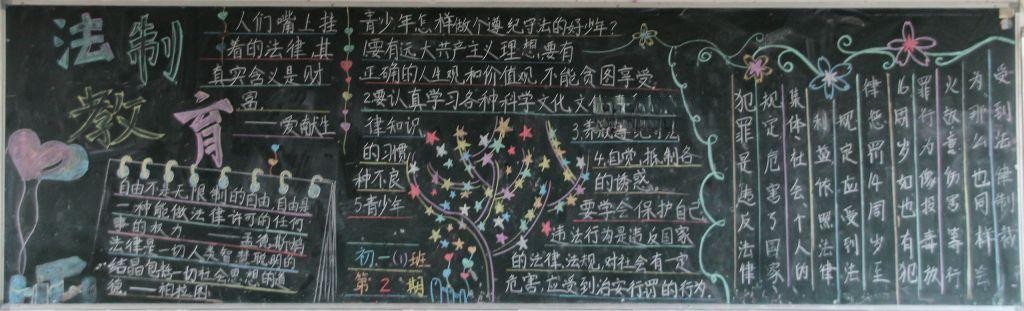 法制
教育
人们嘴上挂
着的法律,其
真实含义是财
富.
——爱献生
自由不是无限制的自由,自由是
一种能做法律许可的任何
事的权力 ——孟德斯鸠
法律是一切人类智慧聪明的
结晶,包括一切社会思想的道
德.——柏拉图
青少年怎样做个遵纪守法的好少年?
1.要有远大共产主义理想,要有
正确的人生观和价值观,不能贪图享受.
2.要认真学习各种科学文化,文化
律知识
3.养成遵纪守法
的习惯
4.自觉,抵制各
种不良
的诱惑.
5.青少年
要学会保护自己
违法行为是违反国家
的法律,法规,对社会有一定
危害,应受到治安行罚的行为.
初一(1)班
第2期
犯罪是违反法律
规定危害了国家
集体社会个人的
利益依照法律
规定应受到法
律惩罚14周岁至
16周岁如也有犯
罪行为像投毒放
火故意伤害等行
为那么也同样会
受到法律制裁